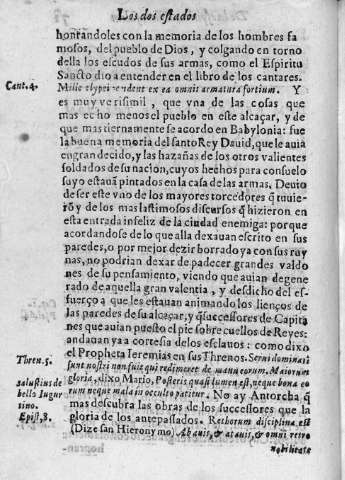 Los dos estados
honrandoles con la memoria de los hombres fa
mosos, del pueblo de Dios, y colgando en torno
della los escudos de sus armas, como el Espiritu
Sancto dio a entender en el libro de los cantares.
Cant. 4.
Mille clypei pendent ex ea omnis armatura fortium. Y
es muy verisimil, que vna de las cosas que
mas echo menos el pueblo en este alcaçar, y de
que mas tiernamente se acordo en Babylonia: fue
la buena memoria del santo Rey Dauid, que le auia
engrandecido, y las hazañas de los otros valientes
soldados de su nacion, cuyos hechos para consuelo
suyo estauā pintados en la casa de las armas. Deuio
de ser este vno de los mayores torcedores q̄ tuuie-
rō y de los mas lastimosos discursos q̄ hizieron en
esta entrada infeliz de la ciudad enemiga: porque
acordandose de lo que alla dexauan escrito en sus
paredes, o por mejor dezir borrado ya con sus ruy
nas, no podrian dexar de padecer grandes valdo
nes de su pensamiento, viendo que auian degene
rado de aquella gran valentia, y desdicho del es-
fuerço a que les estauan animando los lienços de
las paredes de su alcaçar, y q̄ successores de Capita
nes que auian puesto el pie sobre cuellos de Reyes:
andauan ya a cortesia de los esclauos: como dixo
Thren. 5.
el Propheta Ieremias en sus Threnos. Serui dominati
sunt nostri non fuit qui redimeret de manu eorum. Maiorum
Salustius de
bello Iugur
tino.
gloria, dixo Mario, Posteris quasi lumen est, neque bona eo
rum neque mala in occulto patitur. No ay Antorcha q̄
mas descubra las obras de los successores que la
Epist. 8.
gloria de los antepassados. Rethorum disciplina est
(Dize san Hieronymo) Abauis, & atauis, & omni retro
nobilitate